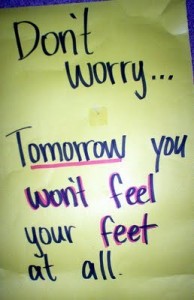 Don't
worry...
Tomorrow you
won't feel
your feet
at all.